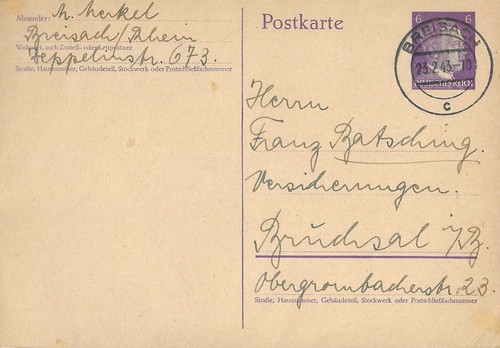 Absender: M. Merkel
Breisach/Rhein
Wohnort, auch Zustell- oder Leitpostamt
Zeppelinstr. 673.
Straße, Hausnummer, Gebäudeteil, Stockwerk oder Postschließfachnummer
Postkarte
6 6
DEUTSCHES REICH
BREISACH
23.2.43-10
c
Herrn
Franz Batsching.
Versicherungen.
Bruchsal i/B.
Obergrombacherstr. 23.
Straße, Hausnummer, Gebäudeteil, Stockwerk oder Postschließfachnummer